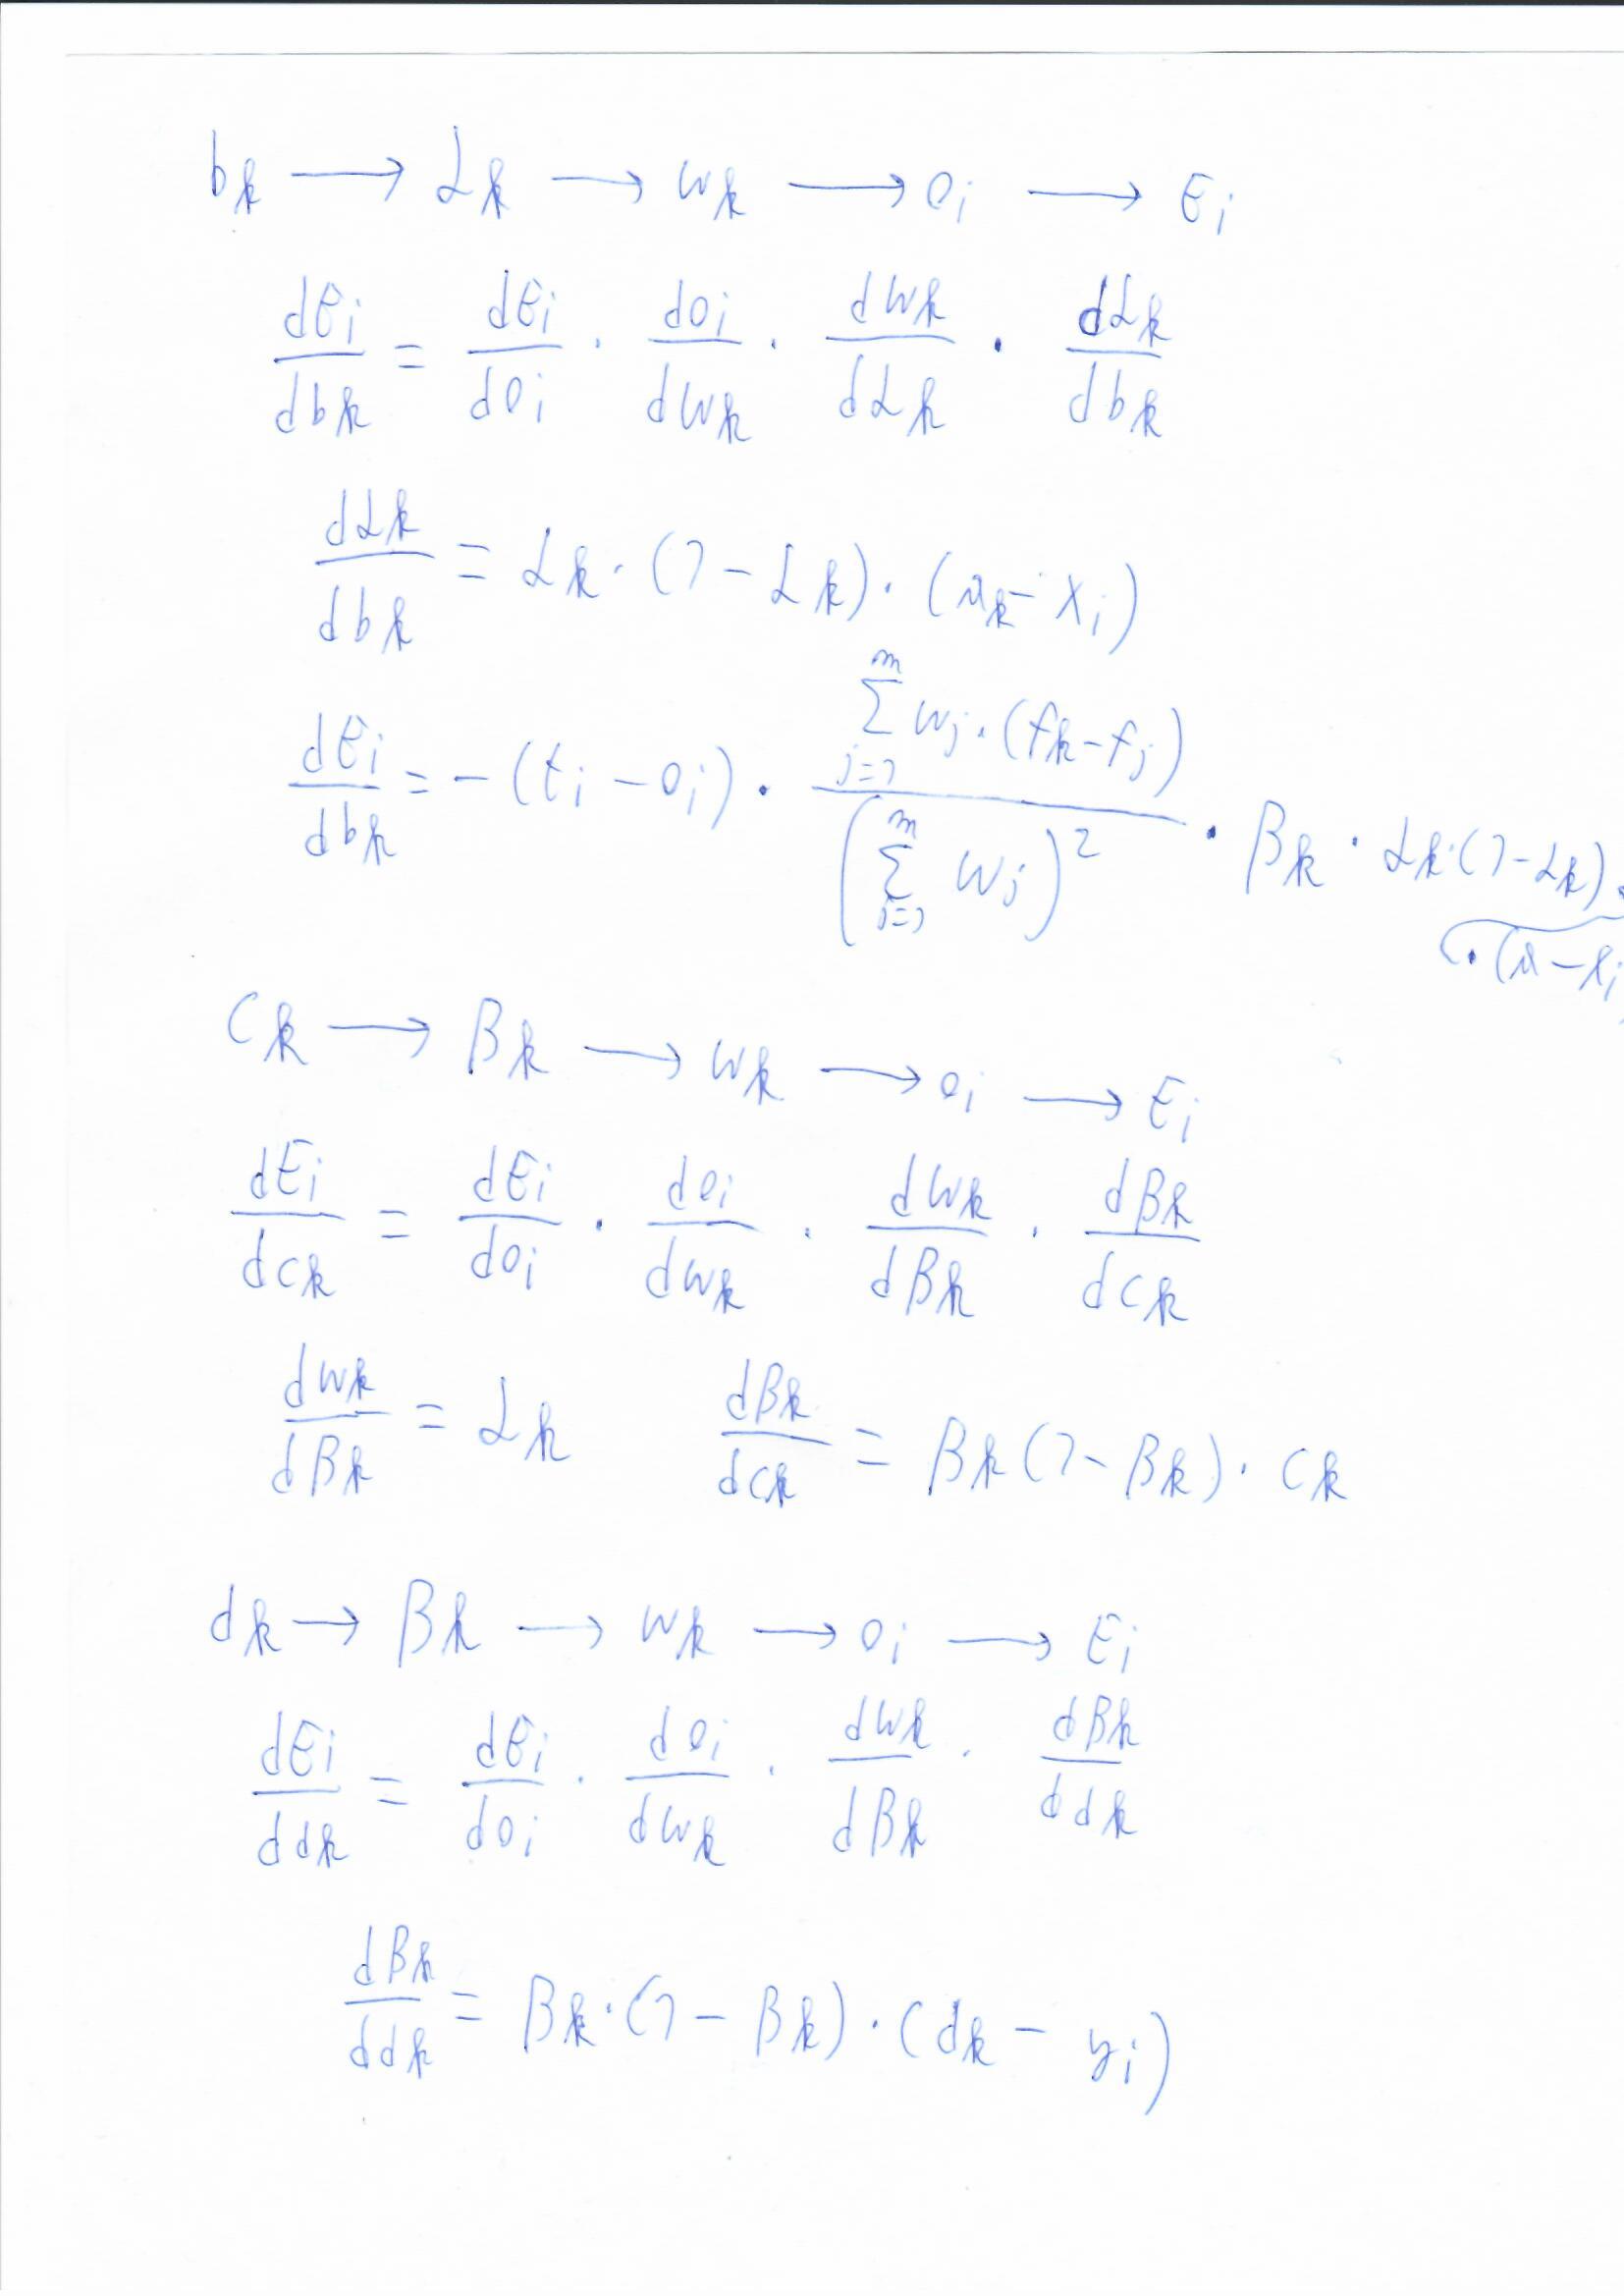 b_k → α_k → w_k → o_i → E_i
dE_i/db_k = dE_i/do_i · do_i/dw_k · dw_k/dα_k · dα_k/db_k
dα_k/db_k = α_k · (1 - α_k) · (a_k - x_i)
dE_i/db_k = -(t_i - o_i) · (∑_{j=1}^{m} w_j · (f_k - f_j)) / (∑_{j=1}^{m} w_j)^2 · β_k · α_k · (1 - α_k) ·
· (a - x_i)
c_k → β_k → w_k → o_i → E_i
dE_i/dc_k = dE_i/do_i · do_i/dw_k · dw_k/dβ_k · dβ_k/dc_k
dw_k/dβ_k = α_k dβ_k/dc_k = β_k (1 - β_k) · c_k
d_k → β_k → w_k → o_i → E_i
dE_i/dd_k = dE_i/do_i · do_i/dw_k · dw_k/dβ_k · dβ_k/dd_k
dβ_k/dd_k = β_k · (1 - β_k) · (d_k - y_i)